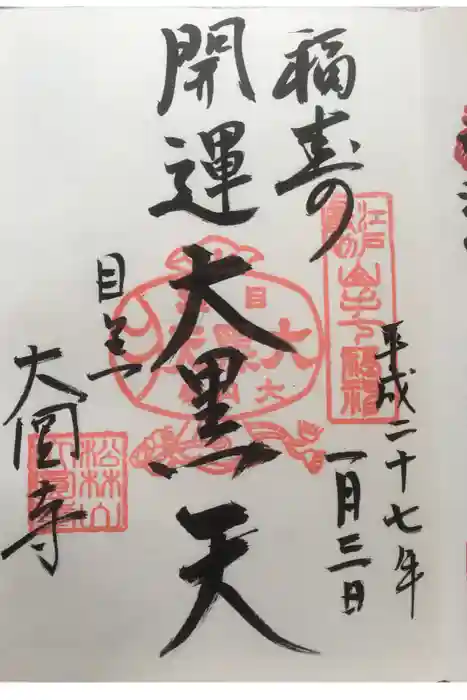 平成二十七年
一月三日
福寿の
開運
大黒天
目黒
大圓寺
江戸
山手七福神
目
大黒天
大
松林山
大圓寺